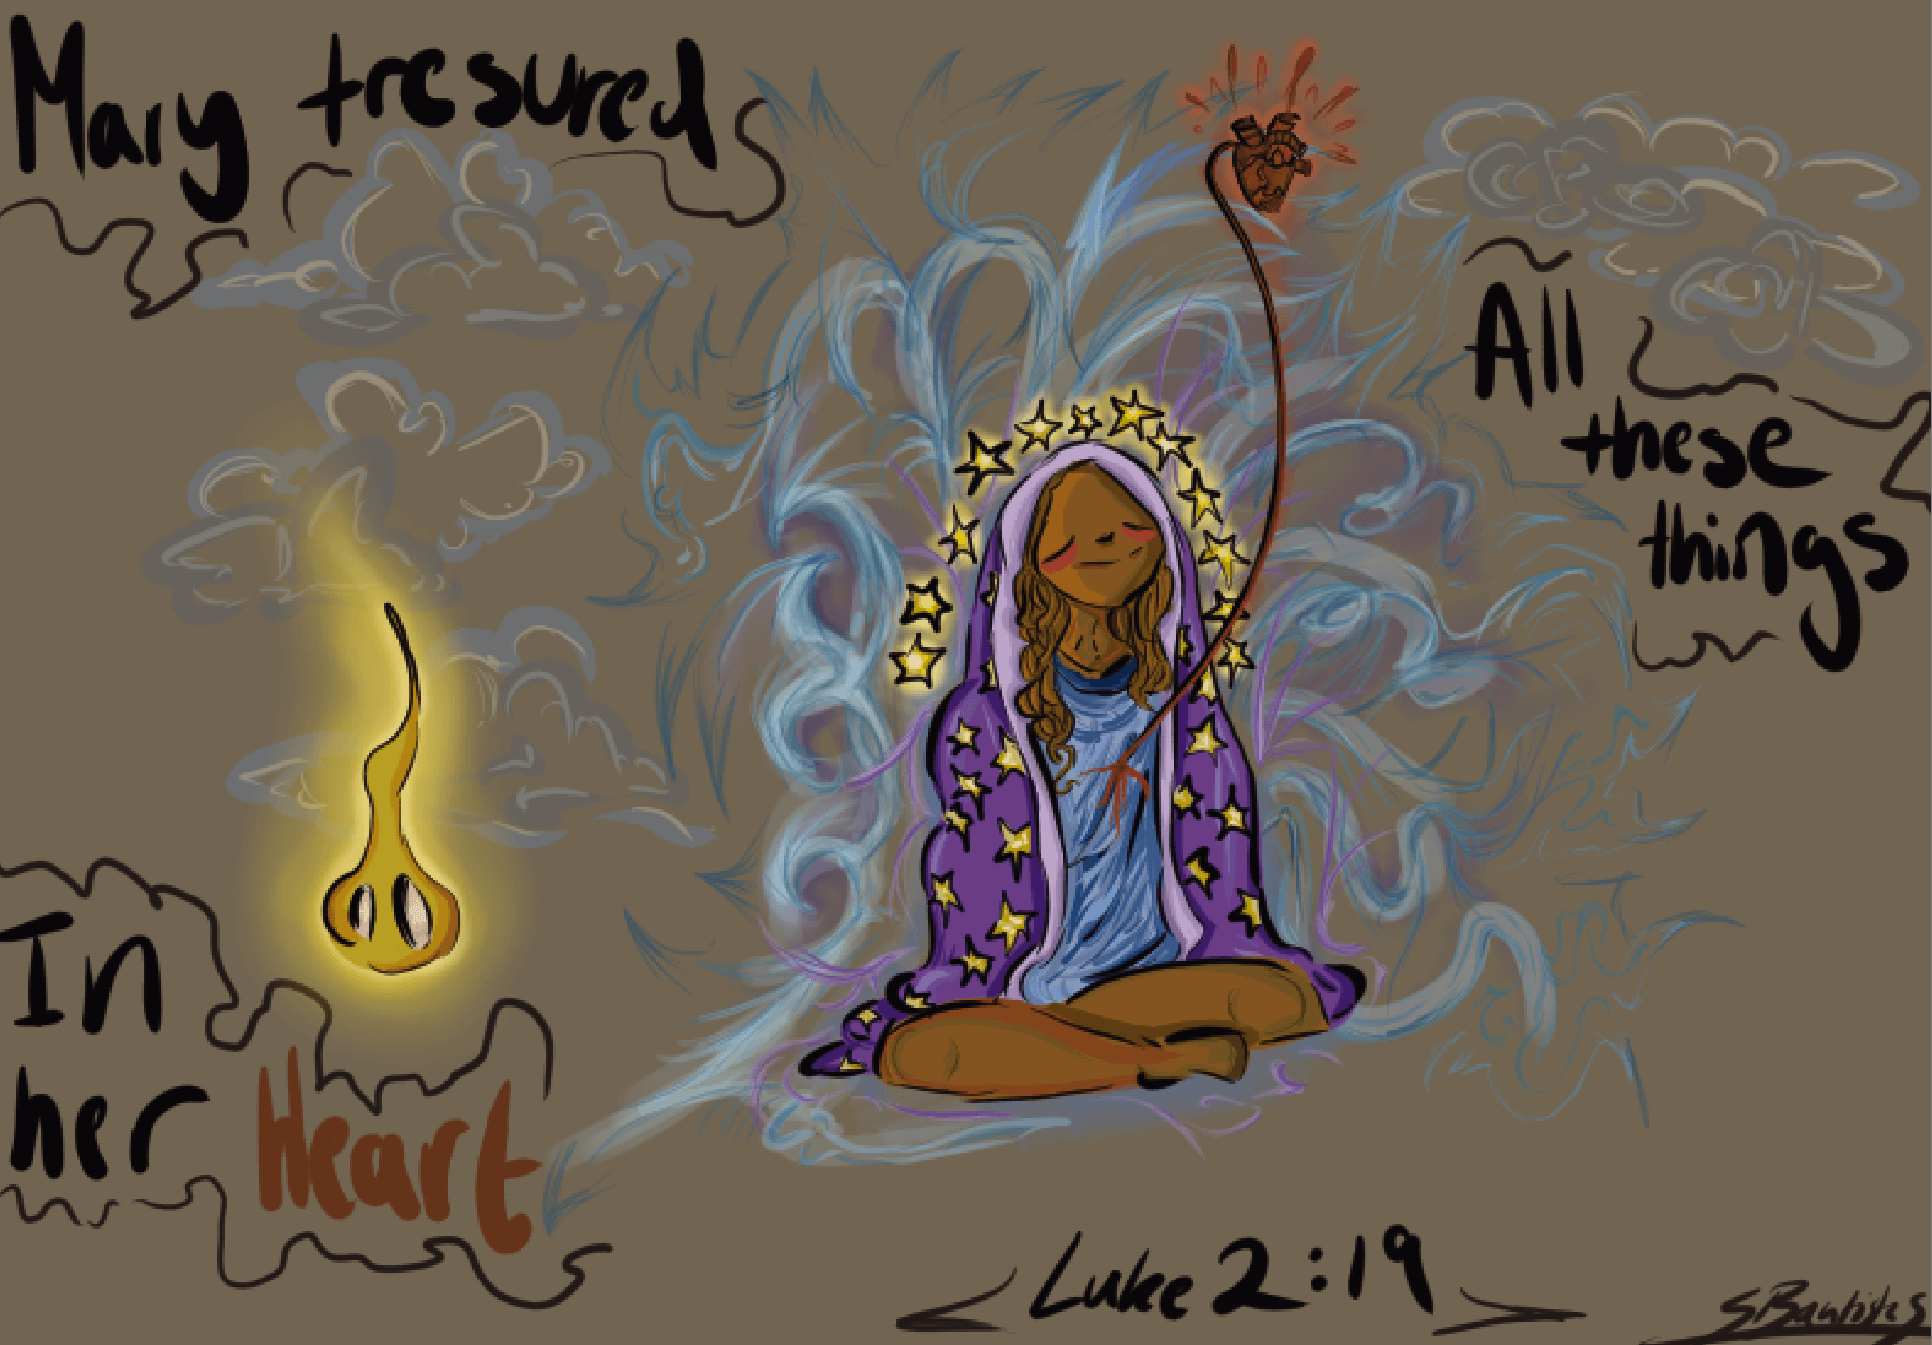 Mary tresured
All
these
things
In
her Heart
Luke 2:19